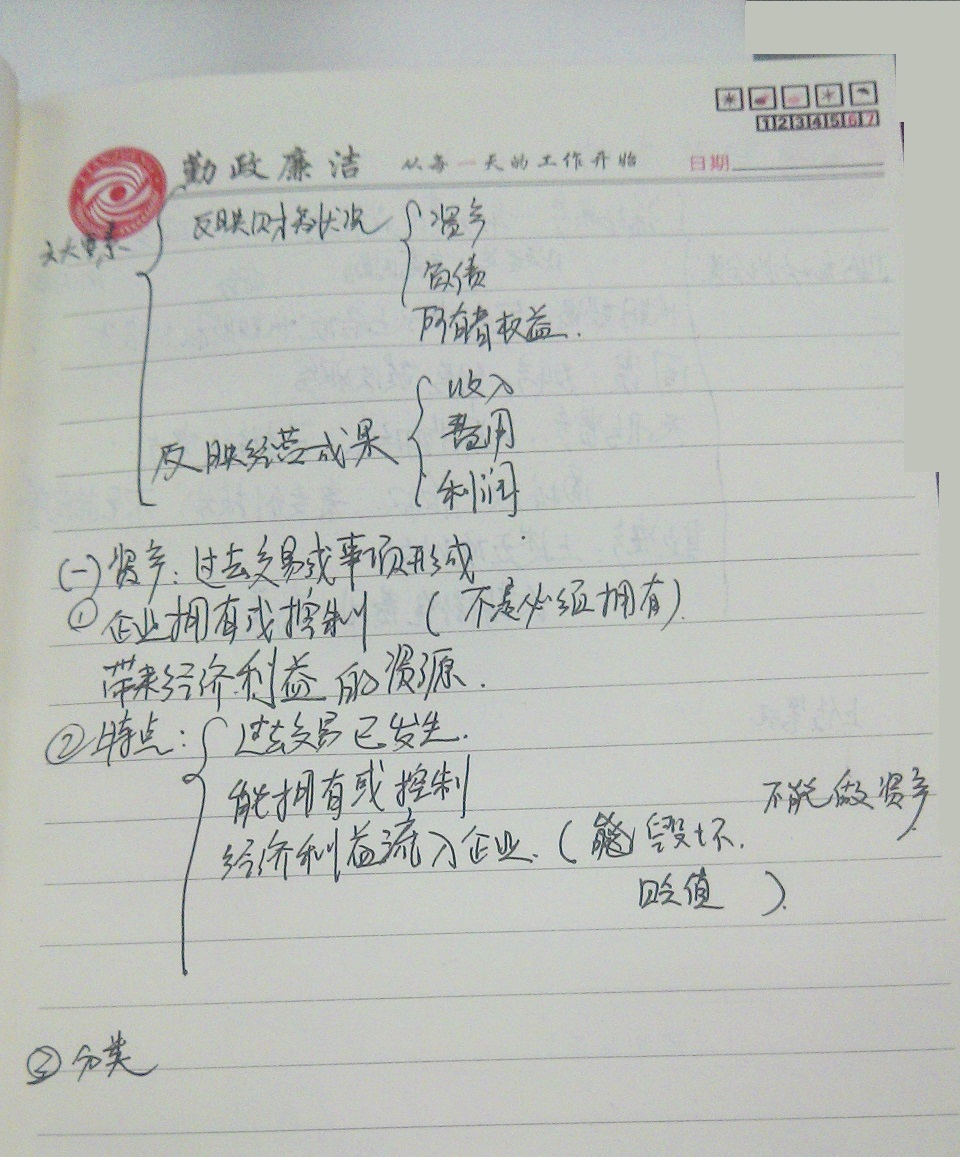 1234567
勤政廉洁 从每一天的工作开始 日期
六大要素 反映财务状况 资产
负债
所有者权益.
收入
费用
反映经营成果
利润
(一)资产:过去交易或事项形成
① 企业拥有或控制 (不是必须拥有).
带来经济利益的资源.
②特点: 过去交易已发生.
能拥有或控制
不能做资产
经济利益流入企业.( 毁坏.
贬值 ).
③分类